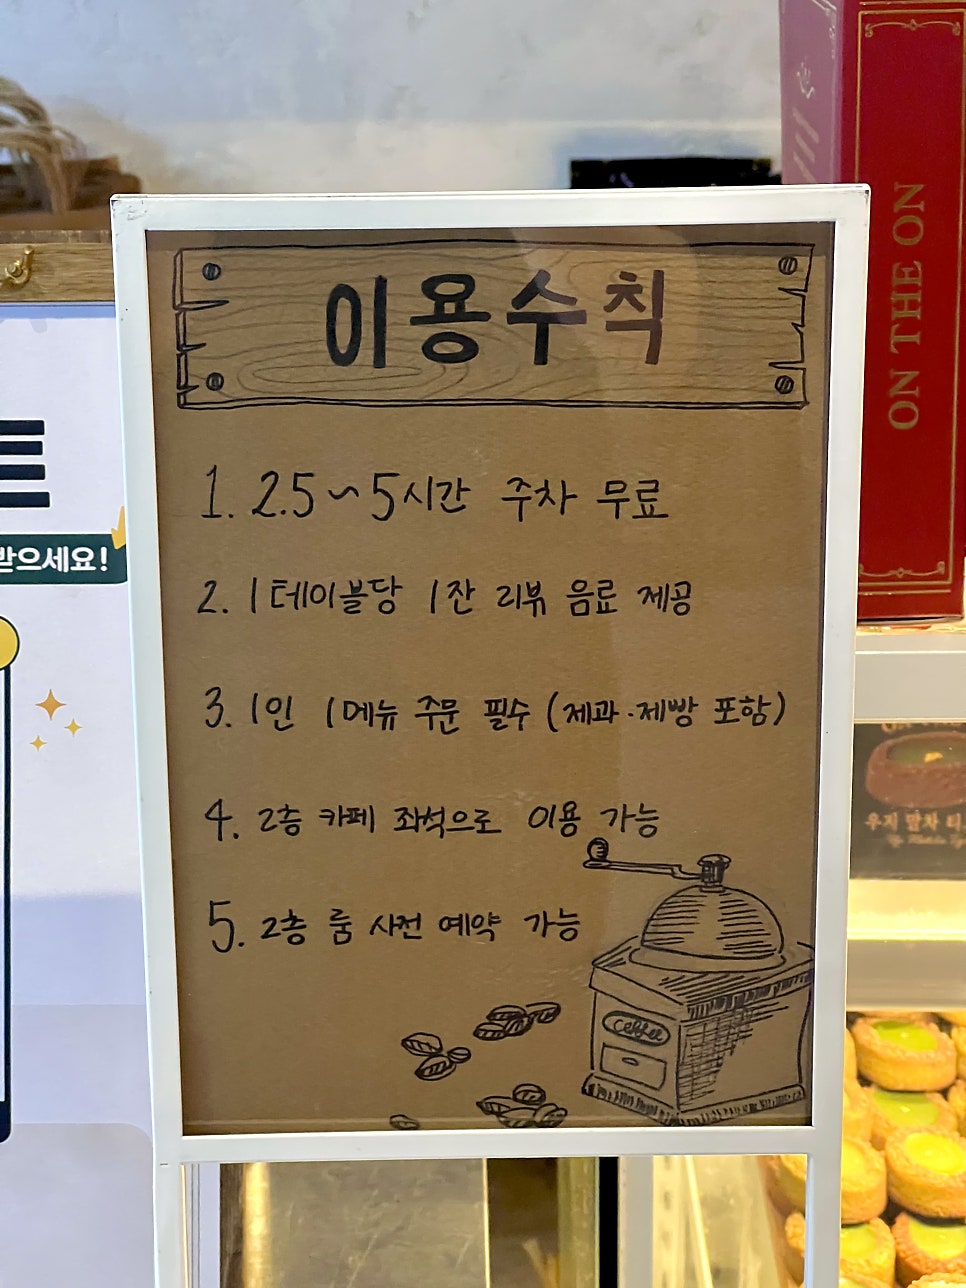 이용수칙
1. 2.5~5시간 주차 무료
2. 1테이블당 1잔 리뷰 음료 제공
3. 1인 1메뉴 주문 필수 (제과·제빵 포함)
4. 2층 카페 좌석으로 이용 가능
5. 2층 룸 사전 예약 가능
Coffee
ON THE ON
트
받으세요!
우지 말차 티